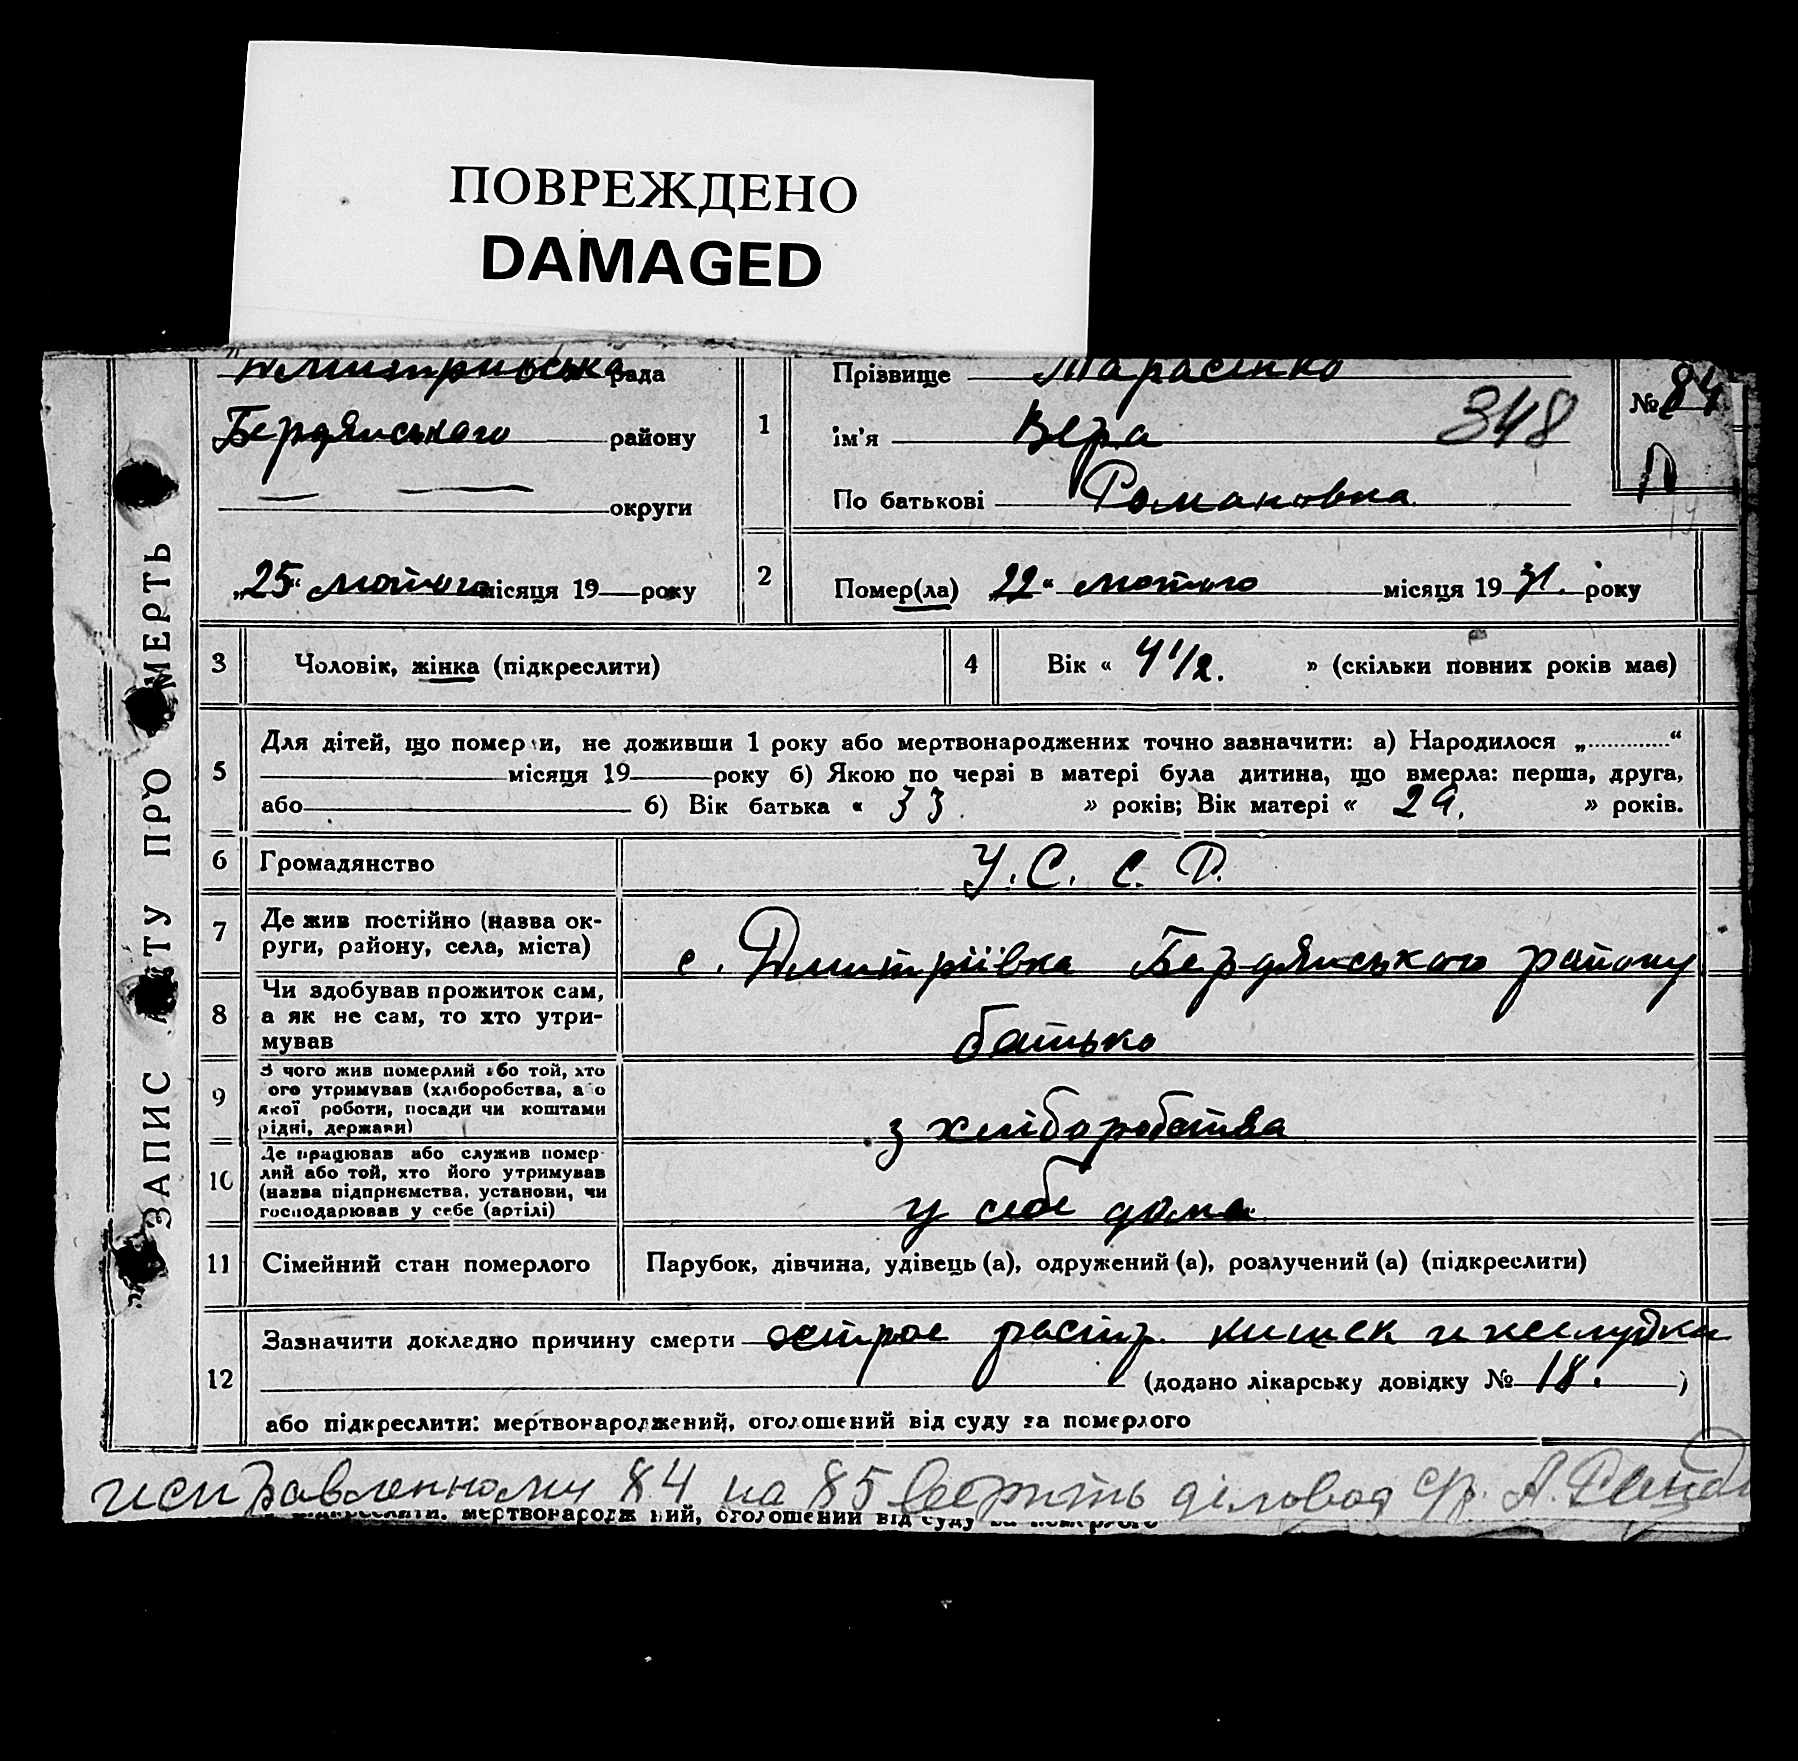 ПОВРЕЖДЕНО
DAMAGED
ЗАПИС АКТУ ПРО СМЕРТЬ
Дмитрівська рада
Бердянського району
округи
„25“ лютого місяця 19 року
1
Прізвище Тарасенко
ім'я Вера 348
По батькові Романовна
№ 84
2
Помер(ла) „22“ лютого місяця 1931. року
3 Чоловік, жінка (підкреслити)
4 Вік « 4 1/2. » (скільки повних років має)
5
Для дітей, що померли, не доживши 1 року або мертвонароджених точно зазначити: а) Народилося „.............“
місяця 19 року б) Якою по черзі в матері була дитина, що вмерла: перша, друга,
або б) Вік батька « 33. » років; Вік матері « 29. » років.
6 Громадянство У. С. С. Р.
7 Де жив постійно (назва ок-
руги, району, села, міста)
с. Дмитріївка Бердянського району
8 Чи здобував прожиток сам,
а як не сам, то хто утри-
мував
батько
9 З чого жив померлий або той, хто
ого утримував (хліборобства, або
якої роботи, посади чи коштами
рідні, держави)
з хліборобства
10 Де працював або служив помер-
лий або той, хто його утримував
(назва підприємства, установи, чи
господарював у себе (артілі)
у себе дома
11 Сімейний стан померлого Парубок, дівчина, удівець (а), одружений (а), розлучений (а) (підкреслити)
12 Зазначити докладно причину смерти острое растр. кишек и желудка
(додано лікарську довідку № 18. )
або підкреслити: мертвонароджений, оголошений від суду за померлого
исправленному 84 на 85 верить діловод с/р. А.
мертвонароджений, оголошений від суду